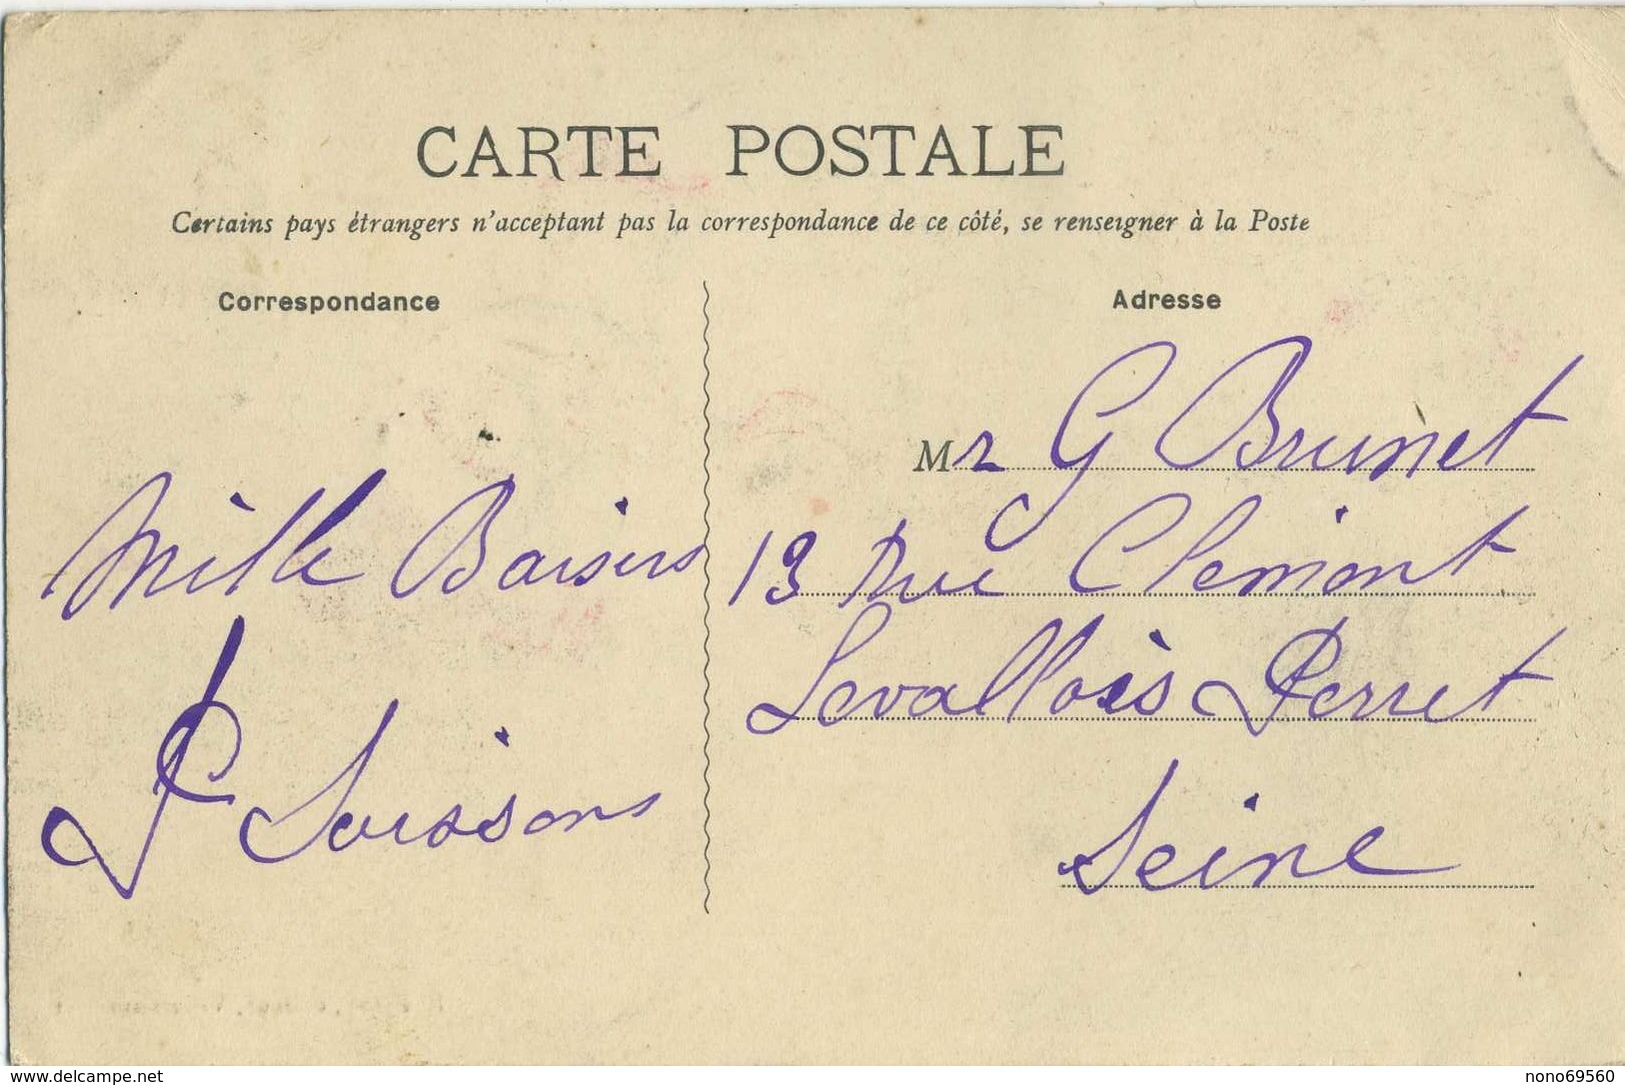 CARTE POSTALE
Certains pays étrangers n'acceptant pas la correspondance de ce côté, se renseigner à la Poste
Correspondance
Mille Baisers
P Soissons
Adresse
Mr G Brunet
13 Rue Clement
Levallois Perret
Seine
www.delcampe.net
nono69560